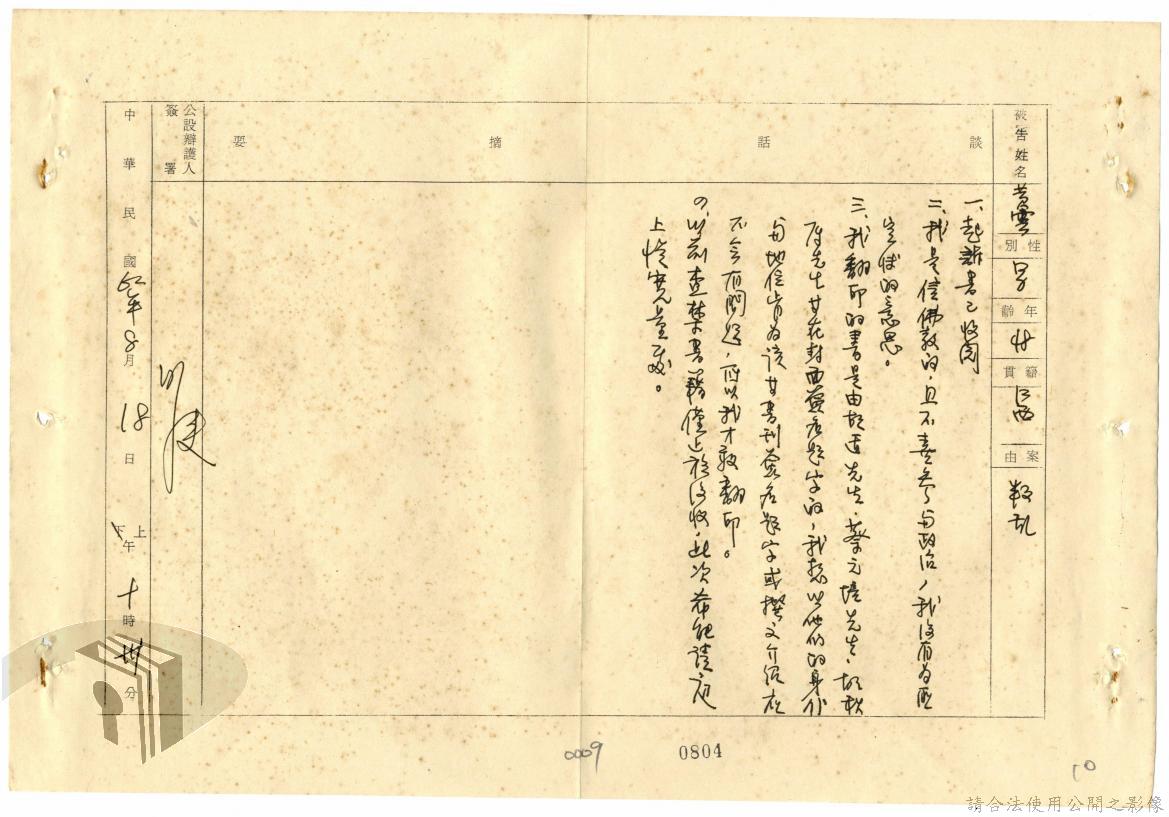 被告姓名 黃雲
性別 男
年齡 廿
籍貫 江西
案由 叛乱
談話摘要
一、起訴書已收閱
二、我是信佛教的，且不喜參与政治，我沒有為匪
宣傳的意思。
三、我翻印的書是由胡適先生、蔡元培先生、胡秋
原先生等在封面簽名題字的，我想以他们的身份
与地位肯為該等書刊簽名題字或撰文介绍应
不会有問題，所以我才敢翻印。
以前查禁書籍僅止於沒收，此次希能請庭
上從寬量處。
公設辯護人
簽署
中華民國 年8月18日上下午十時卅分
0009
0804
10
請合法使用公開之影像